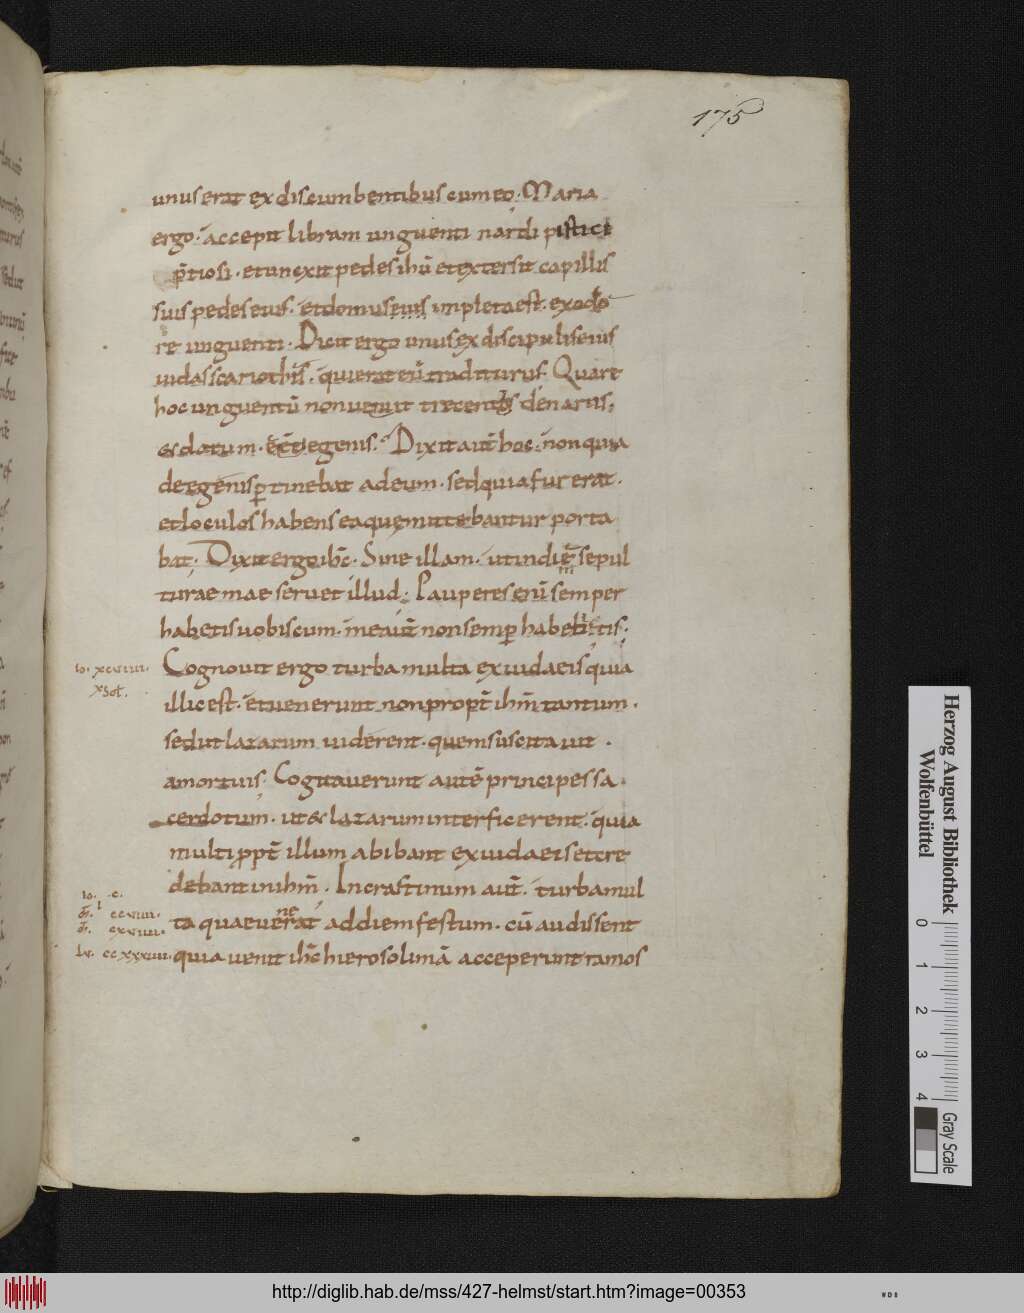 175
unus erat ex discumbentibus cum eo. Maria
ergo. accepit libram unguenti nardi pistici
p̄tiosi. et unexit pedes ihū et extersit capillis
suis pedes eius. et domus eius impleta est. ex odo
re unguenti. Dicit ergo unus ex discipulis eius
iudas scariothis. qui erat eū traditurus. Quare
hoc unguentū non venuit trecentis denariis;
& datum egenis. Dixit aut̄ hoc. non quia
de egenis ꝑtinebat ad eum. sed quia fur erat.
et loculos habens ea quae mittebantur porta
bat. Dixit ergo ihc̄. Sine illam. ut in die sepul
turae mae servet illud. Pauperes enī semper
habetis uobiscum. me aut̄ non semꝑ habebitis;
Io. xcviiii. Cognouit ergo turba multa ex iudaeis quia
illic est. et uenerunt non propt̄ ihm̄ tantum.
sed ut lazarum uiderent. quem suscitauit.
a mortuis. Cogitaverunt autē principes sa
cerdotum. ut & lazarum interficerent. quia
multi ppt̄ illum abibant ex iudaeis et cre
debant in ihm̄. In crastinum aut̄. turba mul
Io. c.
ccviiii. ta quae venerat ad diem festum. cū audissent
cxviiii.
Lu. ccxxxiiii. quia uenit ihc̄ hierosolimā acceperunt ramos
Herzog August Bibliothek
Wolfenbüttel
0 1 2 3 4
Gray Scale
http://diglib.hab.de/mss/427-helmst/start.htm?image=00353
WDB